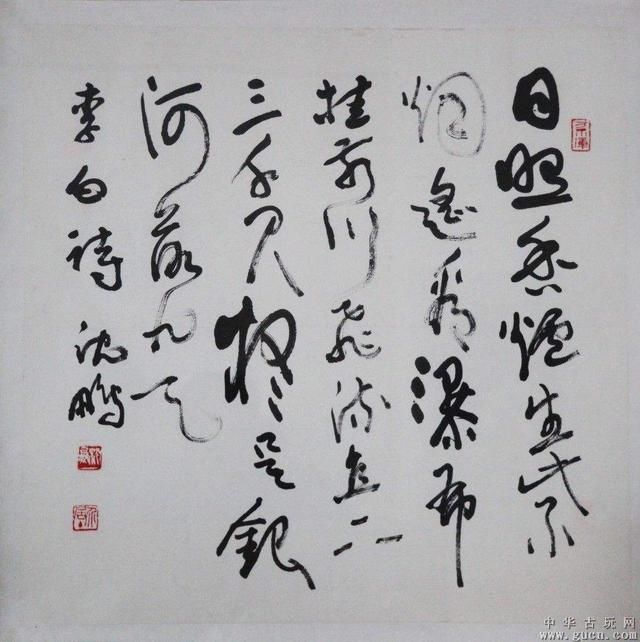 日照香爐生紫
烟遙看瀑布
挂前川飛流直下
三千尺疑是銀
河落九天
李白詩 沈鵬
中华古玩网
www.gucn.com